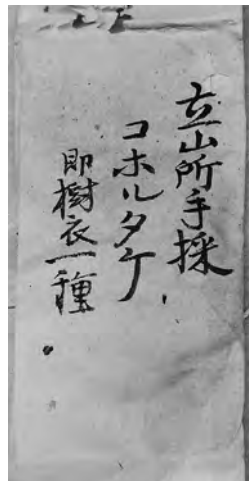 立山所手採
コホルタケ
即樹衣一種